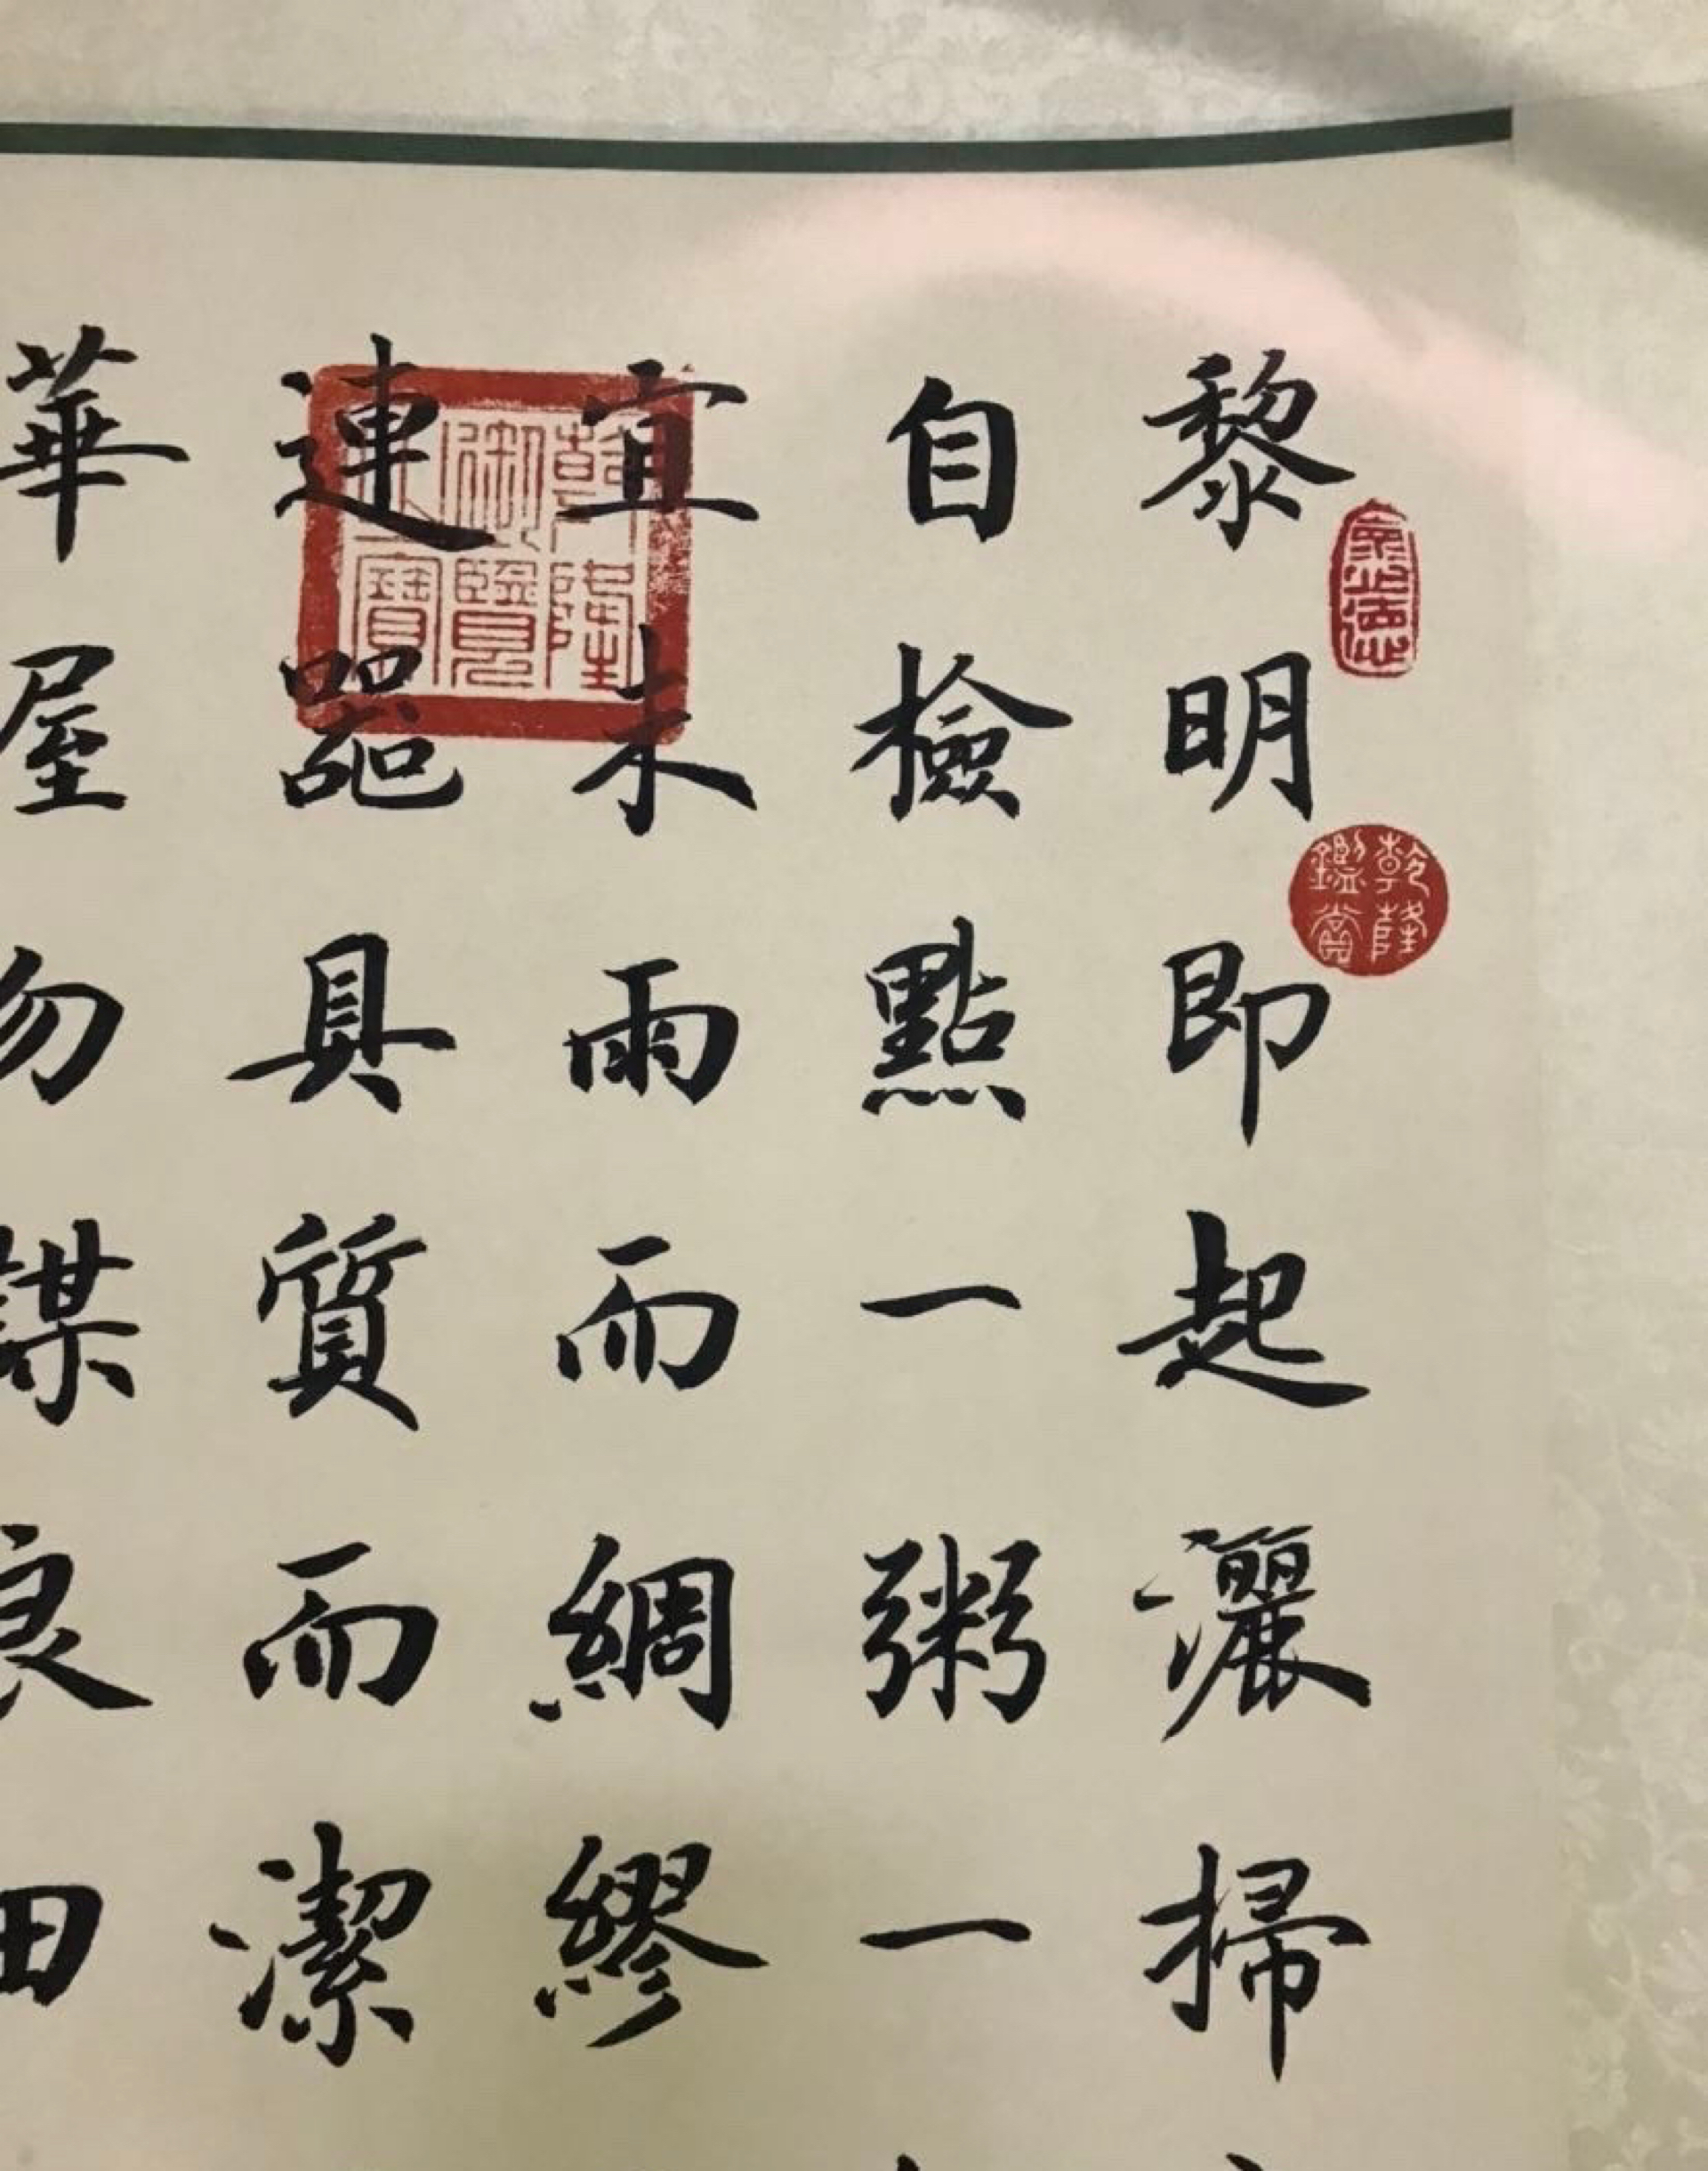 黎明即起灑掃
自檢點一粥一
宜未雨而綢繆
連器具質而潔
華屋勿謀良田
乾隆御覽之寶
乾隆鑑賞